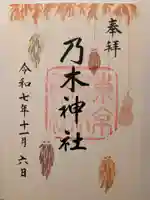 奉拝
乃木神社
令和七年十一月六日